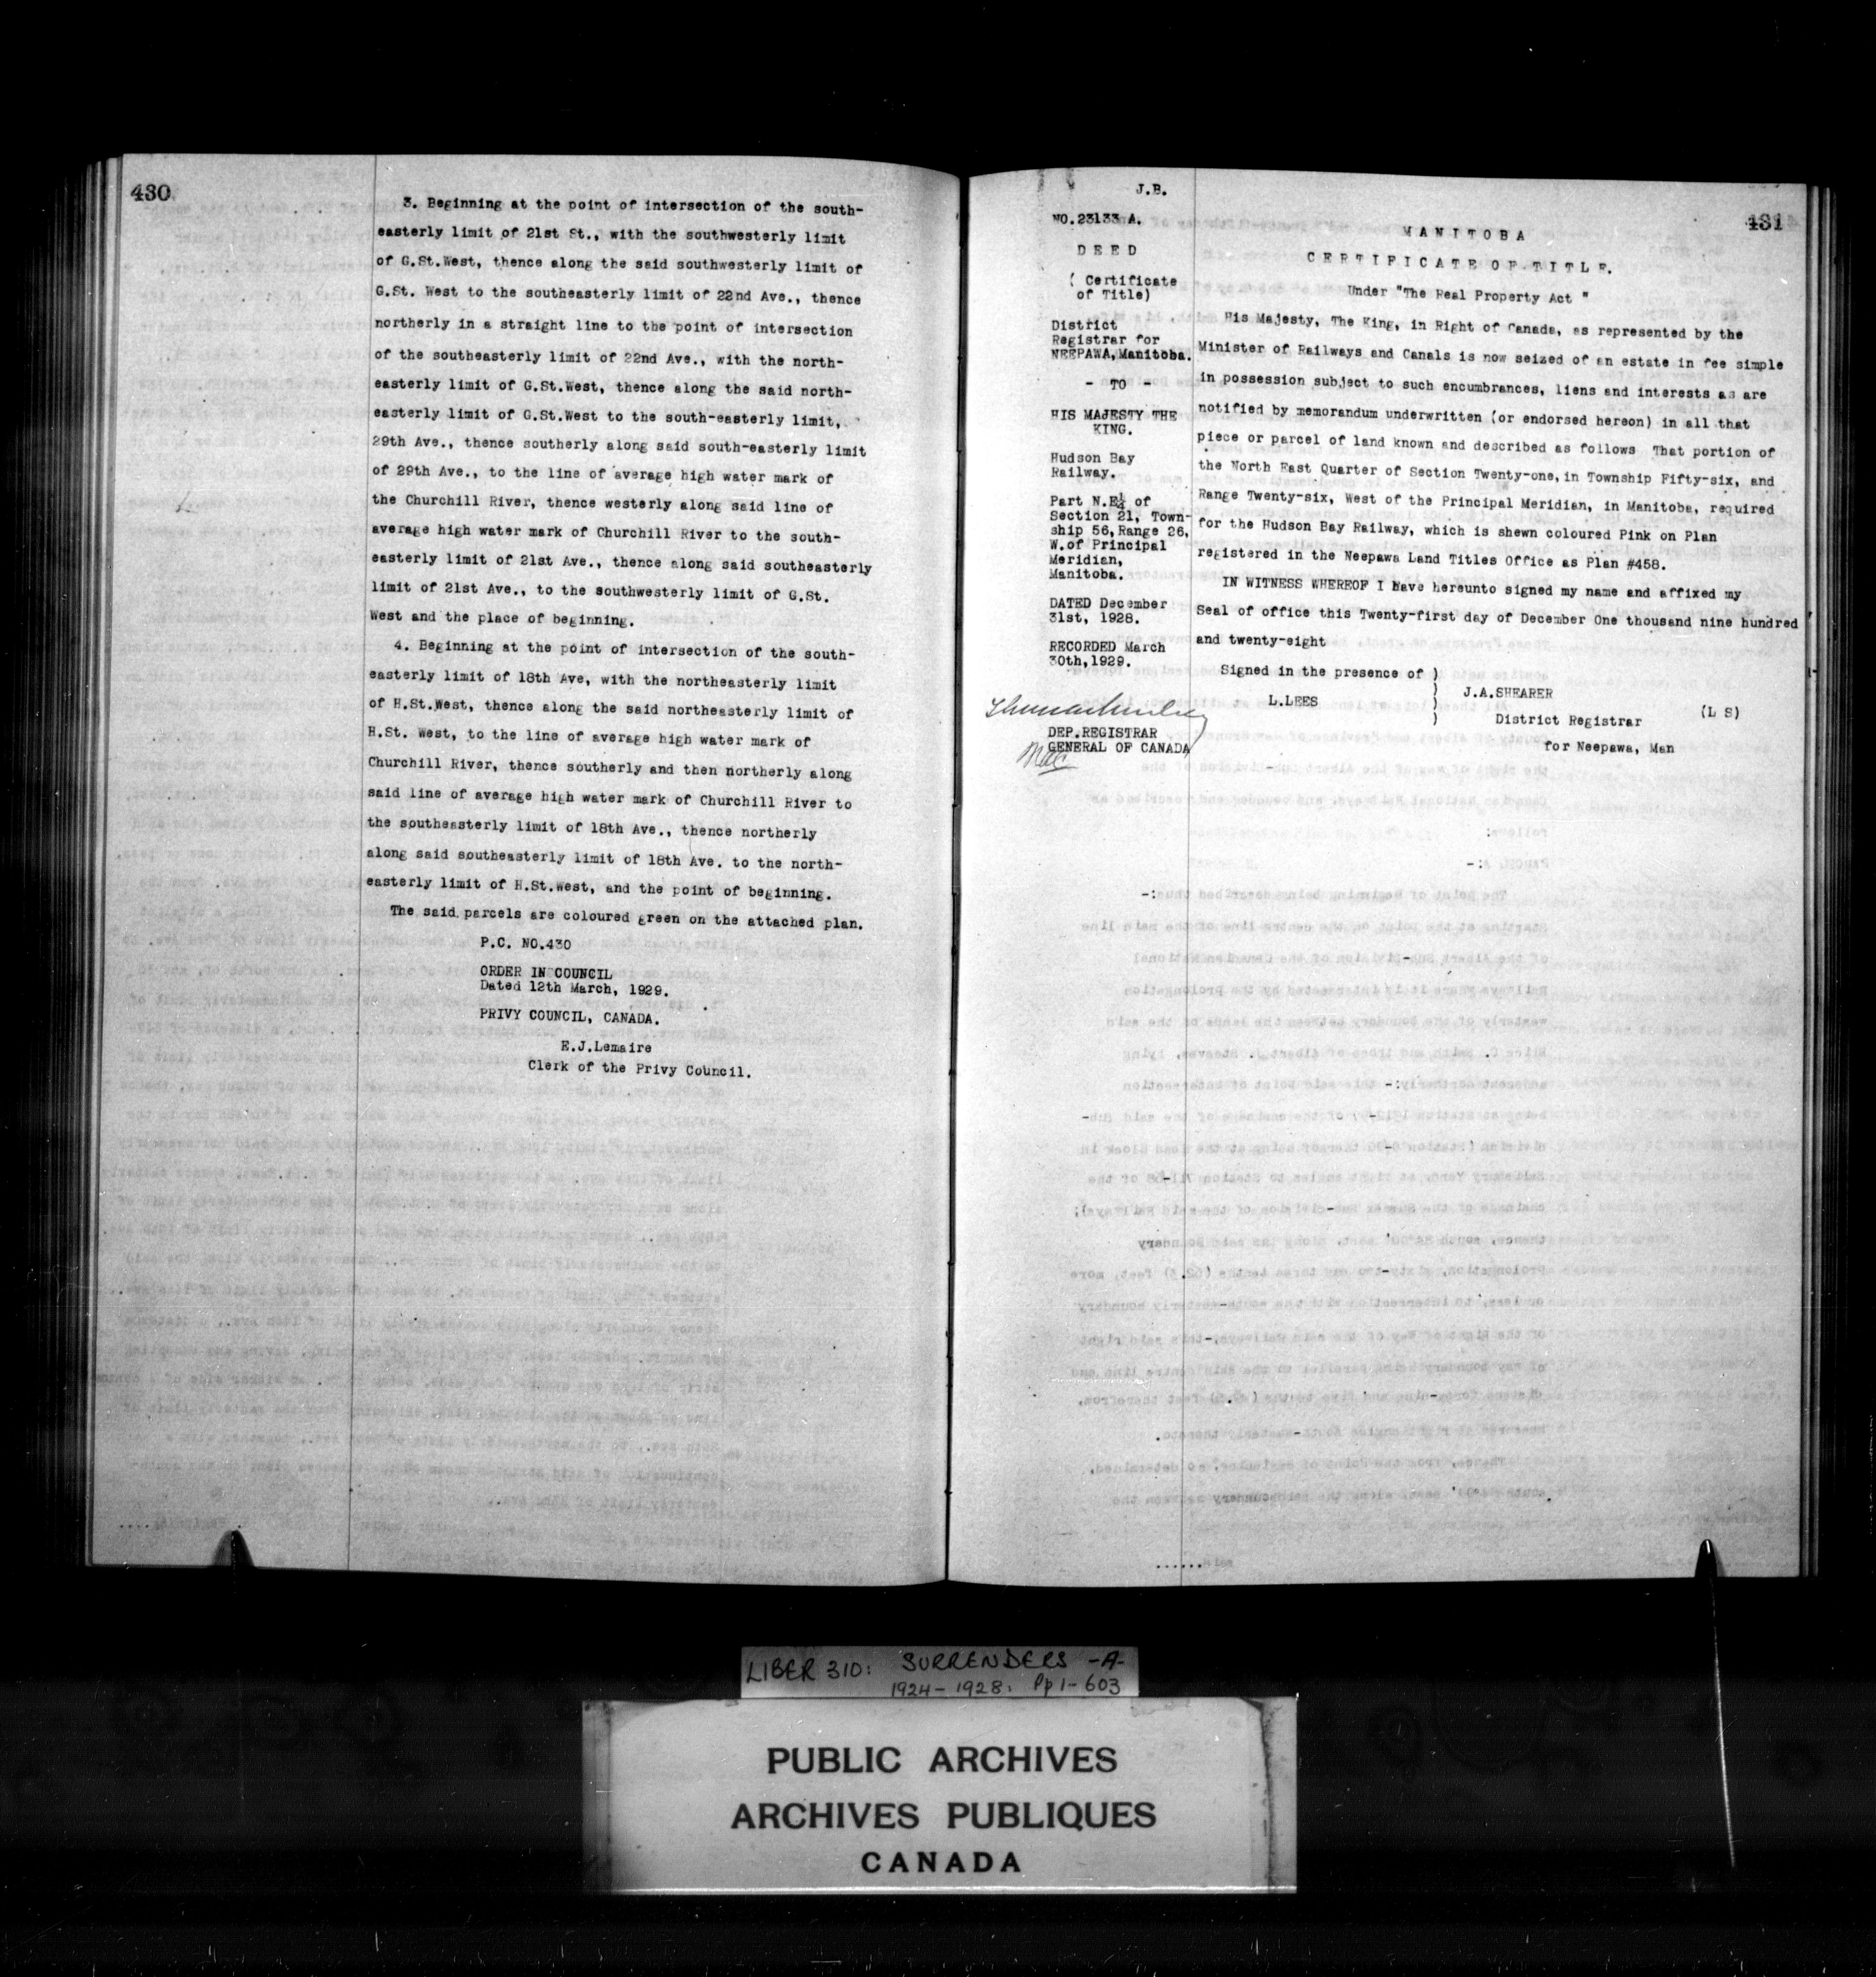 430
3. Beginning at the point of intersection of the south-
easterly limit of 21st St., with the southwesterly limit
of G.St.West, thence along the said southwesterly limit of
G.St. West to the southeasterly limit of 22nd Ave., thence
northerly in a straight line to the point of intersection
of the southeasterly limit of 22nd Ave., with the north-
easterly limit of G.St.West, thence along the said north-
easterly limit of G.St.West to the south-easterly limit,
29th Ave., thence southerly along said south-easterly limit
of 29th Ave., to the line of average high water mark of
the Churchill River, thence westerly along said line of
average high water mark of Churchill River to the south-
easterly limit of 21st Ave., thence along said southeasterly
limit of 21st Ave., to the southwesterly limit of G.St.
West and the place of beginning.
4. Beginning at the point of intersection of the south-
easterly limit of 18th Ave, with the northeasterly limit
of H.St.West, thence along the said northeasterly limit of
H.St. West, to the line of average high water mark of
Churchill River, thence southerly and then northerly along
said line of average high water mark of Churchill River to
the southeasterly limit of 18th Ave., thence northerly
along said southeasterly limit of 18th Ave. to the north-
easterly limit of H.St.West, and the point of beginning.
The said parcels are coloured green on the attached plan.
P.C. NO.430
ORDER IN COUNCIL
Dated 12th March, 1929.
PRIVY COUNCIL, CANADA.
E.J.Lemaire
Clerk of the Privy Council.
J.B.
431
NO.23133 A.
DEED
( Certificate
of Title)
District
Registrar for
NEEPAWA,Manitoba.
- TO -
HIS MAJESTY THE
KING.
Hudson Bay
Railway.
Part N.E¼ of
Section 21, Town-
ship 56,Range 26,
W.of Principal
Meridian,
Manitoba.
DATED December
31st, 1928.
RECORDED March
30th,1929.
DEP.REGISTRAR
GENERAL OF CANADA
MANITOBA
CERTIFICATE OF TITLE.
Under "The Real Property Act "
His Majesty, The King, in Right of Canada, as represented by the
Minister of Railways and Canals is now seized of an estate in fee simple
in possession subject to such encumbrances, liens and interests as are
notified by memorandum underwritten (or endorsed hereon) in all that
piece or parcel of land known and described as follows That portion of
the North East Quarter of Section Twenty-one, in Township Fifty-six, and
Range Twenty-six, West of the Principal Meridian, in Manitoba, required
for the Hudson Bay Railway, which is shewn coloured Pink on Plan
registered in the Neepawa Land Titles Office as Plan #458.
IN WITNESS WHEREOF I have hereunto signed my name and affixed my
Seal of office this Twenty-first day of December One thousand nine hundred
and twenty-eight
Signed in the presence of )
L.LEES )
)
J.A.SHEARER
District Registrar (L S)
for Neepawa, Man
LIBER 310: SURRENDERS -A-
1924-1928: Pp 1-603
PUBLIC ARCHIVES
ARCHIVES PUBLIQUES
CANADA